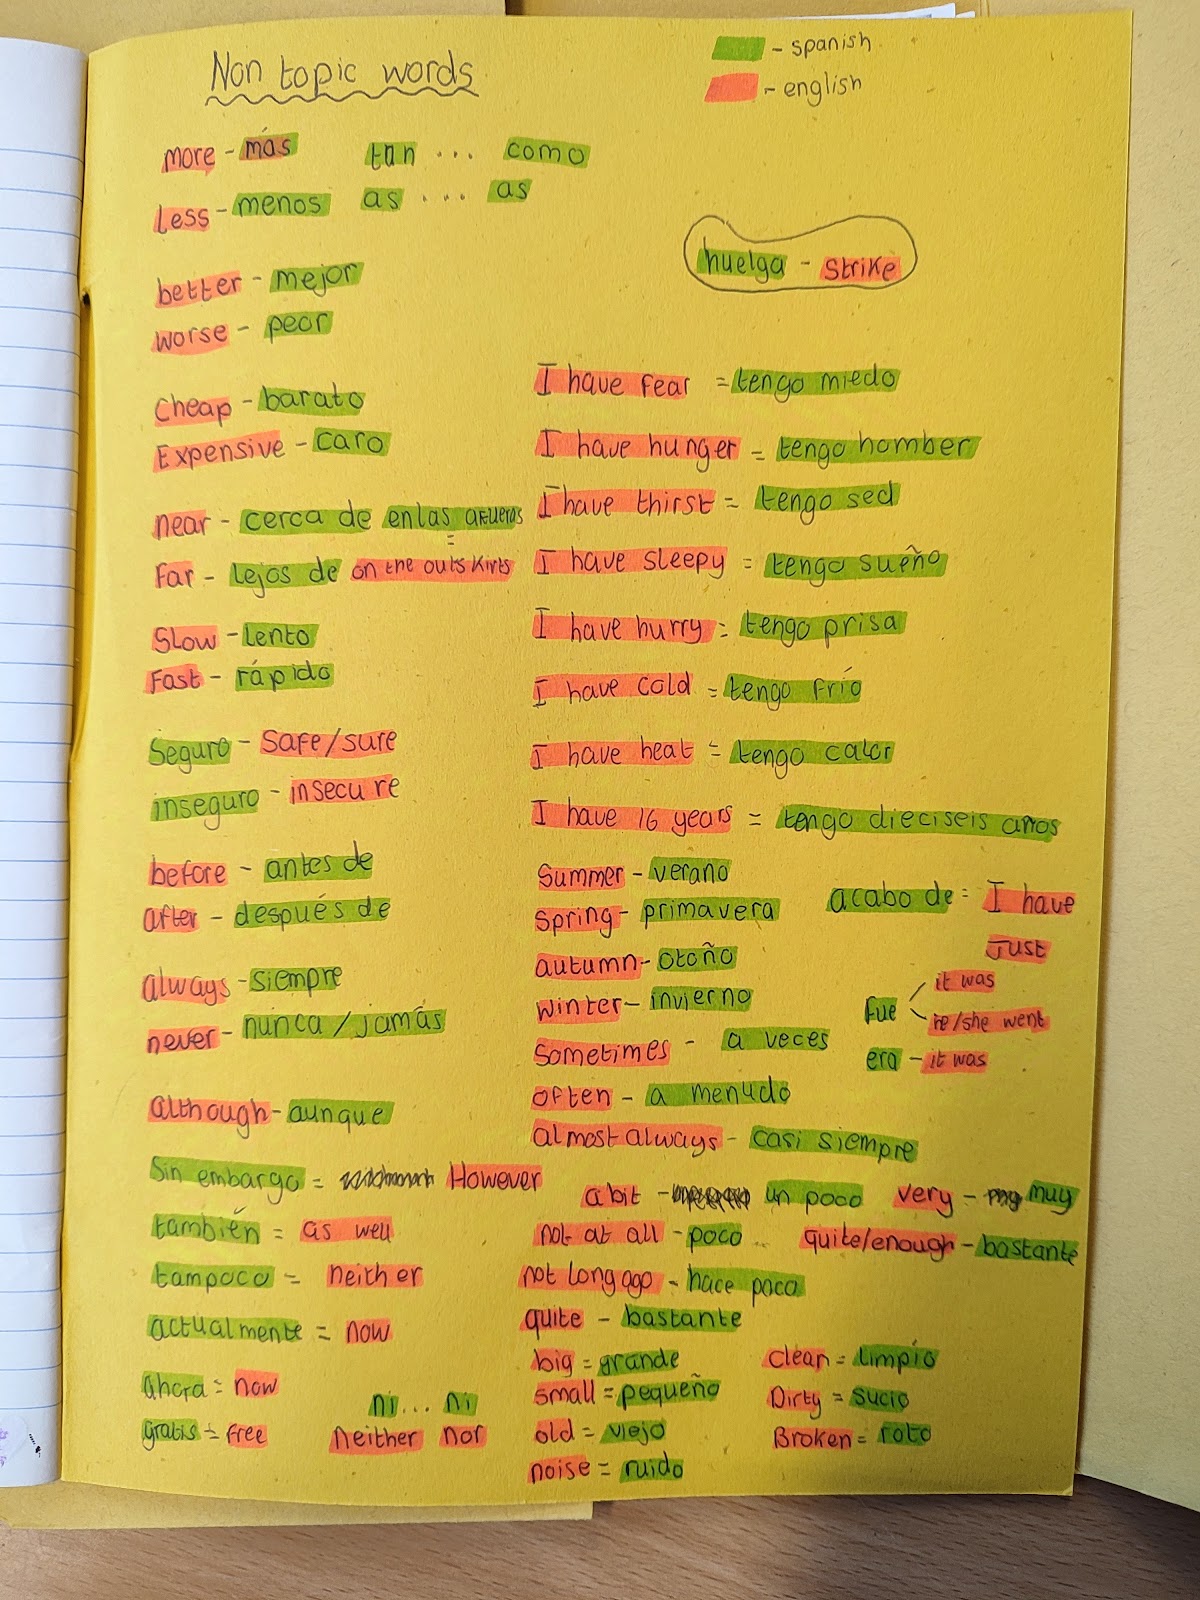 Non topic words
- spanish
- english
more - más
tan ... como
less - menos
as ... as
huelga - strike
better - mejor
worse - peor
cheap - barato
Expensive - caro
near - cerca de
en las afueras
=
on the outskirts
far - lejos de
slow - lento
Fast - rápido
seguro - safe/sure
inseguro - insecure
before - antes de
after - después de
always - siempre
never - nunca / jamás
although - aunque
sin embargo = However
también = as well
tampoco = neither
actualmente = now
ahora = now
gratis = free
ni ... ni
neither nor
I have fear = tengo miedo
I have hunger = tengo homber
I have thirst = tengo sed
I have sleepy = tengo sueño
I have hurry = tengo prisa
I have cold = tengo frío
I have heat = tengo calor
I have 16 years = tengo dieciseis años
summer - verano
spring - primavera
autumn - otoño
winter - invierno
acabo de = I have
Just
fue
it was
he/she went
era - it was
sometimes - a veces
often - a menudo
almost always - casi siempre
a bit - un poco
very - muy
not at all - poco
quite/enough - bastante
not long ago - hace poco
quite - bastante
big = grande
small = pequeño
old = viejo
noise = ruido
clean = limpio
Dirty = sucio
Broken = roto